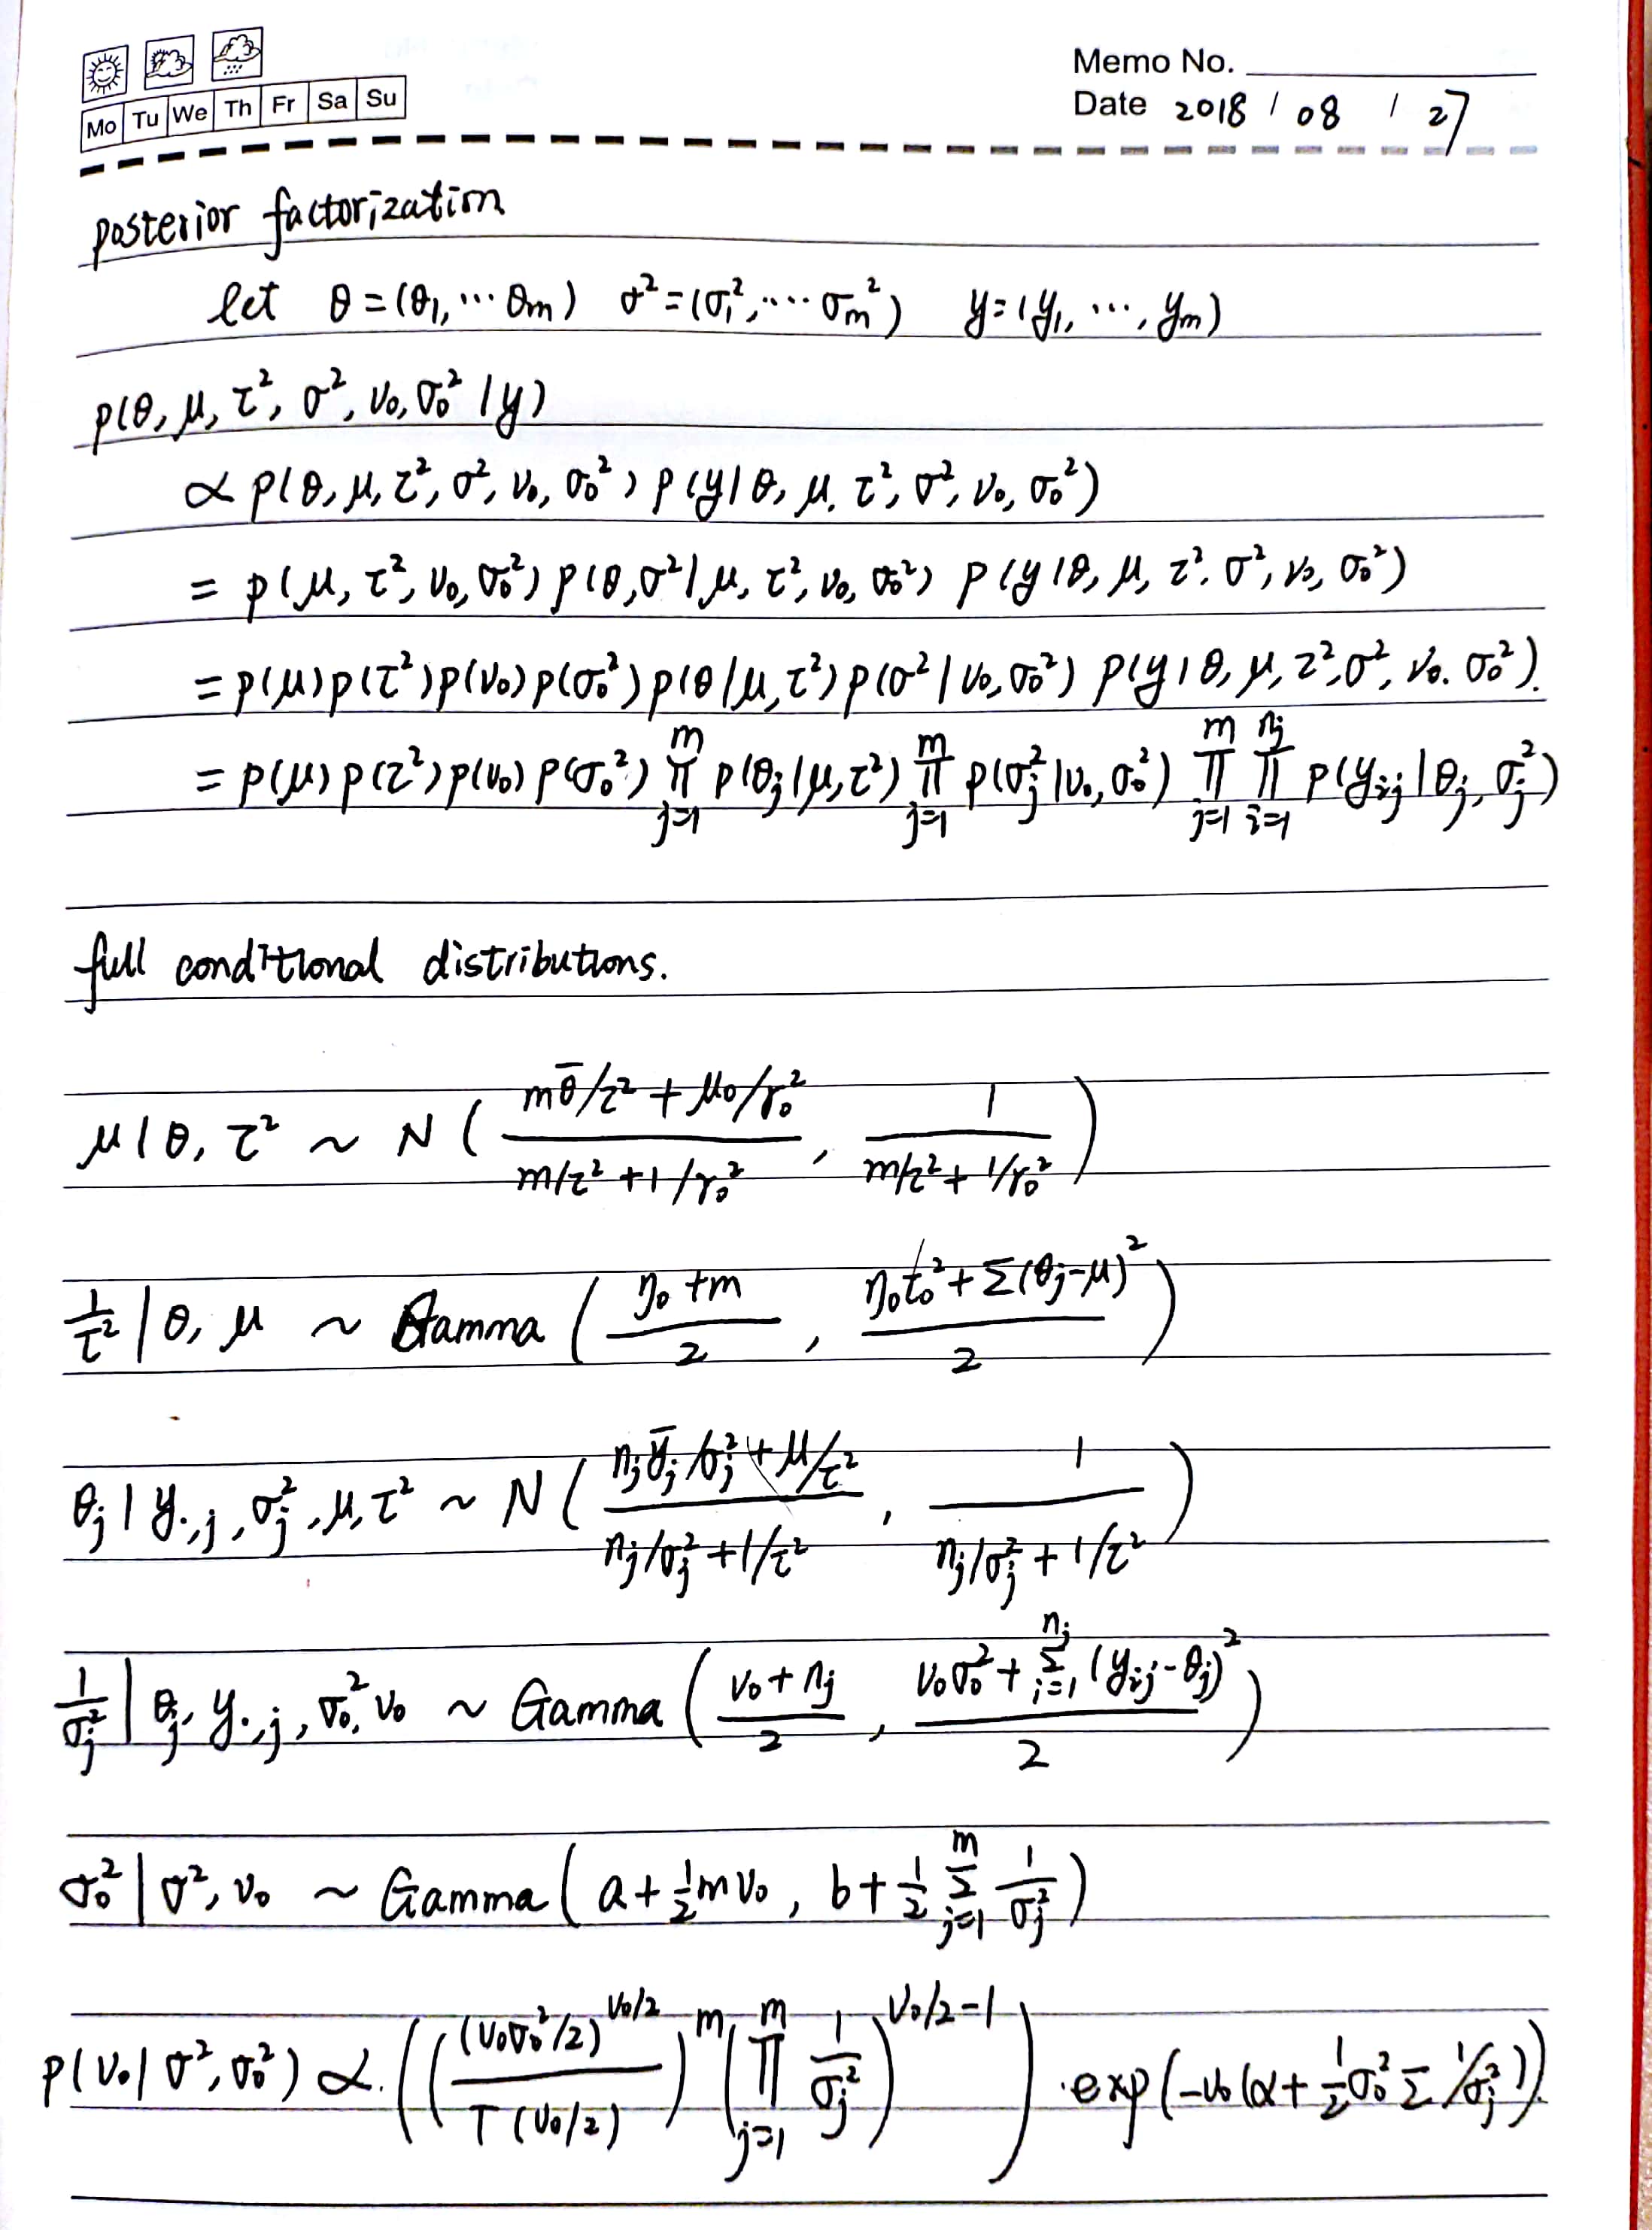 Memo No.
Mo Tu We Th Fr Sa Su
Date 2018 / 08 / 27
posterior factorization
let θ=(θ₁,⋯θm) σ²=(σ₁²,⋯σm²) y=(y₁,⋯,ym)
p(θ, μ, τ², σ², ν₀, σ₀² | y)
∝ p(θ, μ, τ², σ², ν₀, σ₀²) p(y | θ, μ, τ², σ², ν₀, σ₀²)
= p(μ, τ², ν₀, σ₀²) p(θ,σ² | μ, τ², ν₀, σ₀²) p(y | θ, μ, τ², σ², ν₀, σ₀²)
= p(μ)p(τ²)p(ν₀)p(σ₀²)p(θ | μ, τ²)p(σ² | ν₀, σ₀²) p(y | θ, μ, τ², σ², ν₀, σ₀²).
= p(μ)p(τ²)p(ν₀)p(σ₀²) ∏_{j=1}^{m} p(θj | μ, τ²) ∏_{j=1}^{m} p(σj² | ν₀, σ₀²) ∏_{j=1}^{m} ∏_{i=1}^{nj} p(yij | θj, σj²)
full conditional distributions.
μ | θ, τ² ~ N( (mθ̄/τ² + μ₀/γ₀²)/(m/τ² + 1/γ₀²), 1/(m/τ² + 1/γ₀²) )
1/τ² | θ, μ ~ Gamma( (η₀+m)/2, (η₀τ₀² + Σ(θj-μ)²)/2 )
θj | y.,j, σj², μ, τ² ~ N( (njȳj/σj² + μ/τ²)/(nj/σj² + 1/τ²), 1/(nj/σj² + 1/τ²) )
1/σj² | θj, y.,j, σ₀², ν₀ ~ Gamma( (ν₀+nj)/2, (ν₀σ₀² + Σ_{i=1}^{nj} (yij-θj)²)/2 )
σ₀² | σ², ν₀ ~ Gamma( a + ½mν₀, b + ½ Σ_{j=1}^{m} 1/σj² )
p(ν₀ | σ², σ₀²) ∝. ( ( (ν₀σ₀²/2)^{ν₀/2} / Γ(ν₀/2) )^m ( ∏_{j=1}^{m} 1/σj² )^{ν₀/2-1} ) · exp(-ν₀(α + ½σ₀² Σ 1/σj²)).